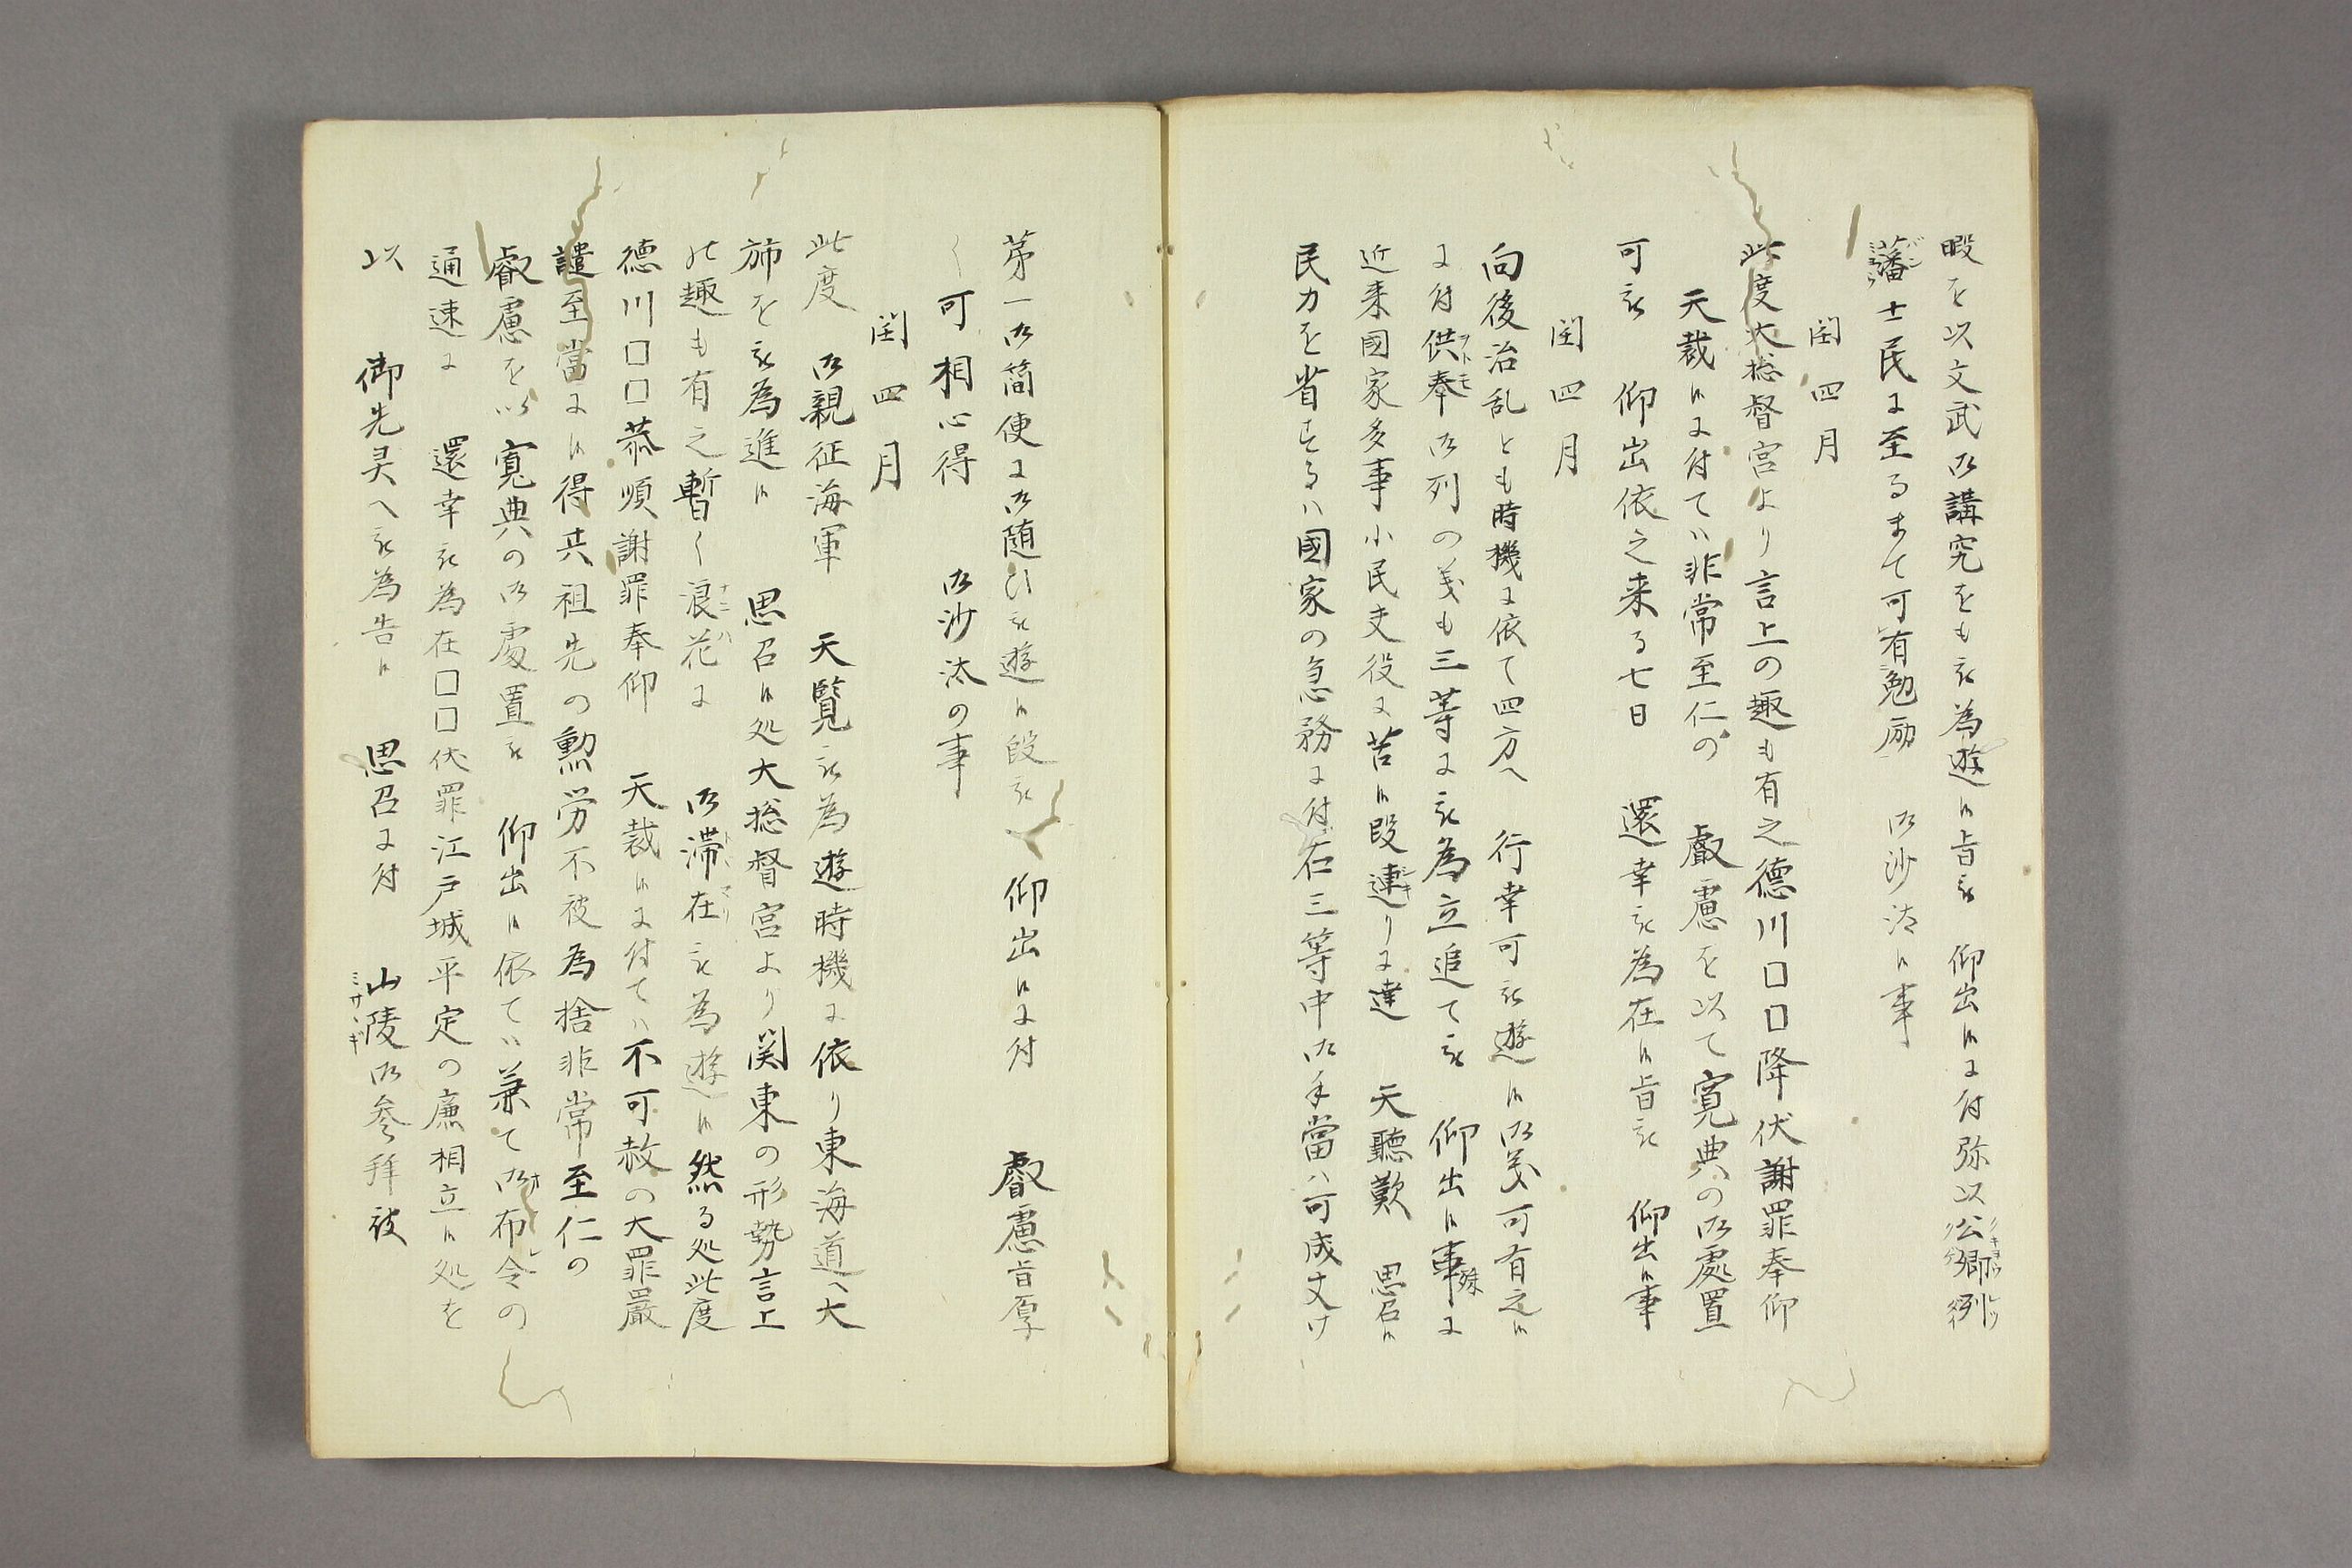 暇を以文武御講究をも被為遊候旨被　仰出候に付弥以公卿列
藩士民に至るまて可有勉励　御沙汰候事
閏四月
此度大総督宮より言上の趣も有之徳川口口降伏謝罪奉仰
天裁候に付てハ非常至仁の　叡慮を以て寛典の御處置
可被　仰出依之来る七日　還幸被為在候旨被　仰出候事
閏四月
向後治乱とも時機に依て四方へ　行幸可被遊候御義可有之候
に付供奉御列の義も三等に被為立追て被　仰出候事殊に
近来國家多事小民夫役に苦候段連りに達　天聴歎　思召候
民力を省するハ國家の急務に付右三等中御手當ハ可成丈け
第一御簡便に御随ひ被遊候段被　仰出候に付　叡慮旨厚
く可相心得　御沙汰の事
閏四月
此度　御親征海軍　天覧被為遊時機に依り東海道へ大
旆を被為進候　思召候処大総督宮より関東の形勢言上
の趣も有之暫く浪花に　御滞在被為遊候然る処此度
徳川口口恭順謝罪奉仰　天裁候に付てハ不可赦の大罪嚴
譴至當に候得共祖先の勲労不被為捨非常至仁の
叡慮を以寛典の御處置被　仰出候依てハ兼て御布令の
通速に　還幸被為在口口伏罪江戸城平定の廉相立候処を
以　御先灵へ被為告候　思召に付　山陵御参拜被